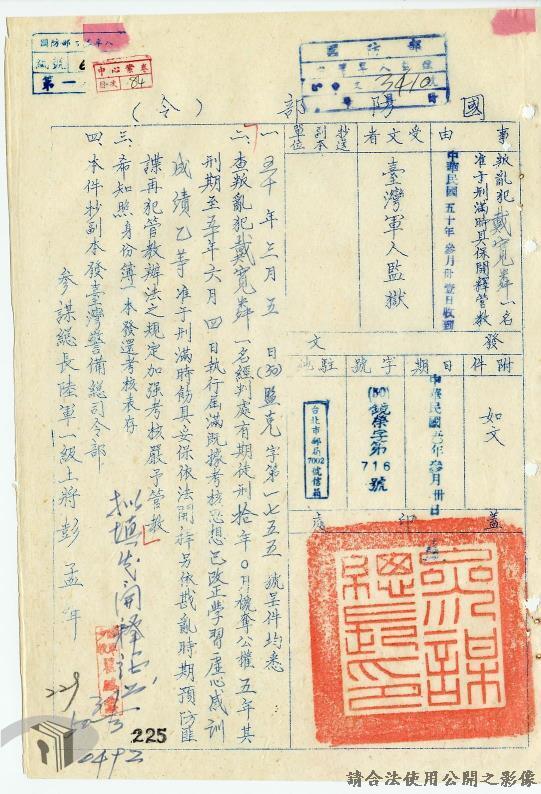 國防部
3410
中心業卷
目次 84
第一
國防部（令）
事由
叛亂犯戴寬彝一名
准于刑滿時具保開釋管教
中華民國五十年參月卅壹日收到
受文者
臺灣軍人監獄
抄送副本單位
發文
附件
如文
日期
中華民國五十年參月卅日
字號
(50)
鏡榮字第
716
號
駐地
台北市郵局
7002
號信箱
蓋印處
參謀總長印
一、五十年三月五日(50)監克字第一七五五號呈件均悉
二、查叛亂犯戴寬彝一名經判處有期徒刑拾年0月褫奪公權五年其
刑期至五十年六月四日執行屆滿既據考核思想已改正學習虛心感訓
成績乙等准于刑滿時飭具妥保依法開釋另依戡亂時期預防匪
諜再犯管教辦法之規定加强考核嚴予管教
三、希知照身份簿一本發還考核表存
四、本件抄副本發臺灣警備總司令部
參謀總長陸軍一級上將彭孟緝
229
225
0492
請合法使用公開之影像